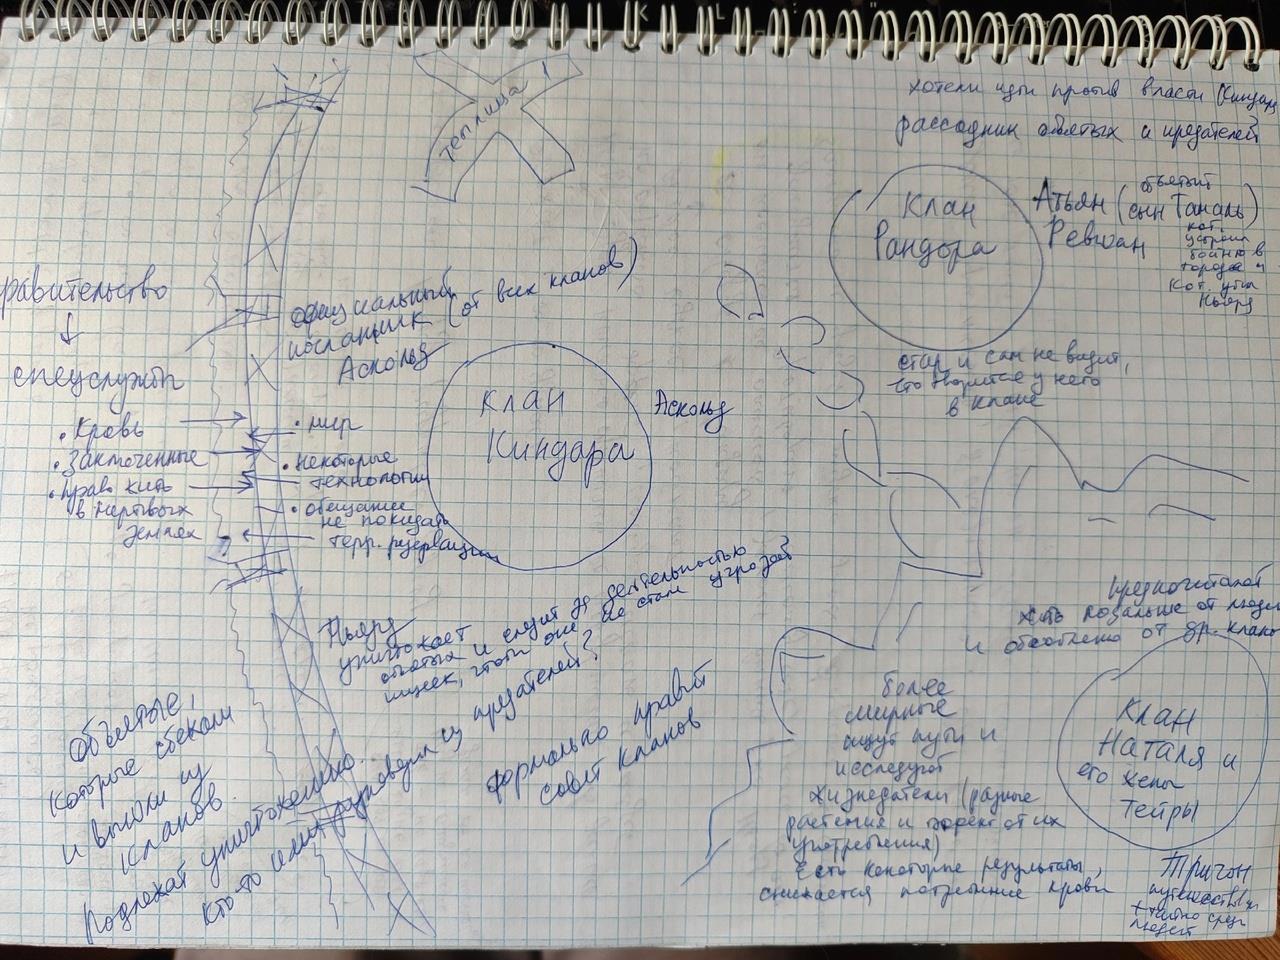 теплица 1
хотели идти против власти Киндара
рассадник объятых и предателей
Клан
Рандора
Атьян
Ревиан
объятый
(сын Таналь)
кот.
устроил
бойню в
городе и
кот. убил
Ньярд
стар и сам не видит,
что творится у него
в клане
равительство
спецслужбы
• Кровь
• Заключенные
• право жить
в мертвых
землях
официальный
посланник (от всех кланов)
Аскольд
• мир
• некоторые
технологии
• обещание
не покидать
терр. резервации
Клан
Киндара
Аскольд
Ньярд
уничтожает
объятых и следит за деятельностью
ищеек, чтобы они не стали угрозой
формально правит
совет кланов
Объятые,
которые сбежали
и вышли из
кланов.
Подлежат уничтожению
Кто-то из предателей?
предпочитают
жить подальше от людей
и обособлено от др. клано
Клан
Наталя и
его жены
Тейры
более
мирные
ищут пути и
исследуют
жизнедатели (разные
растения и эффект от их
употребления)
Есть некоторые результаты,
снижается потребление крови
Тричон
путешествует
тайно среди
людей